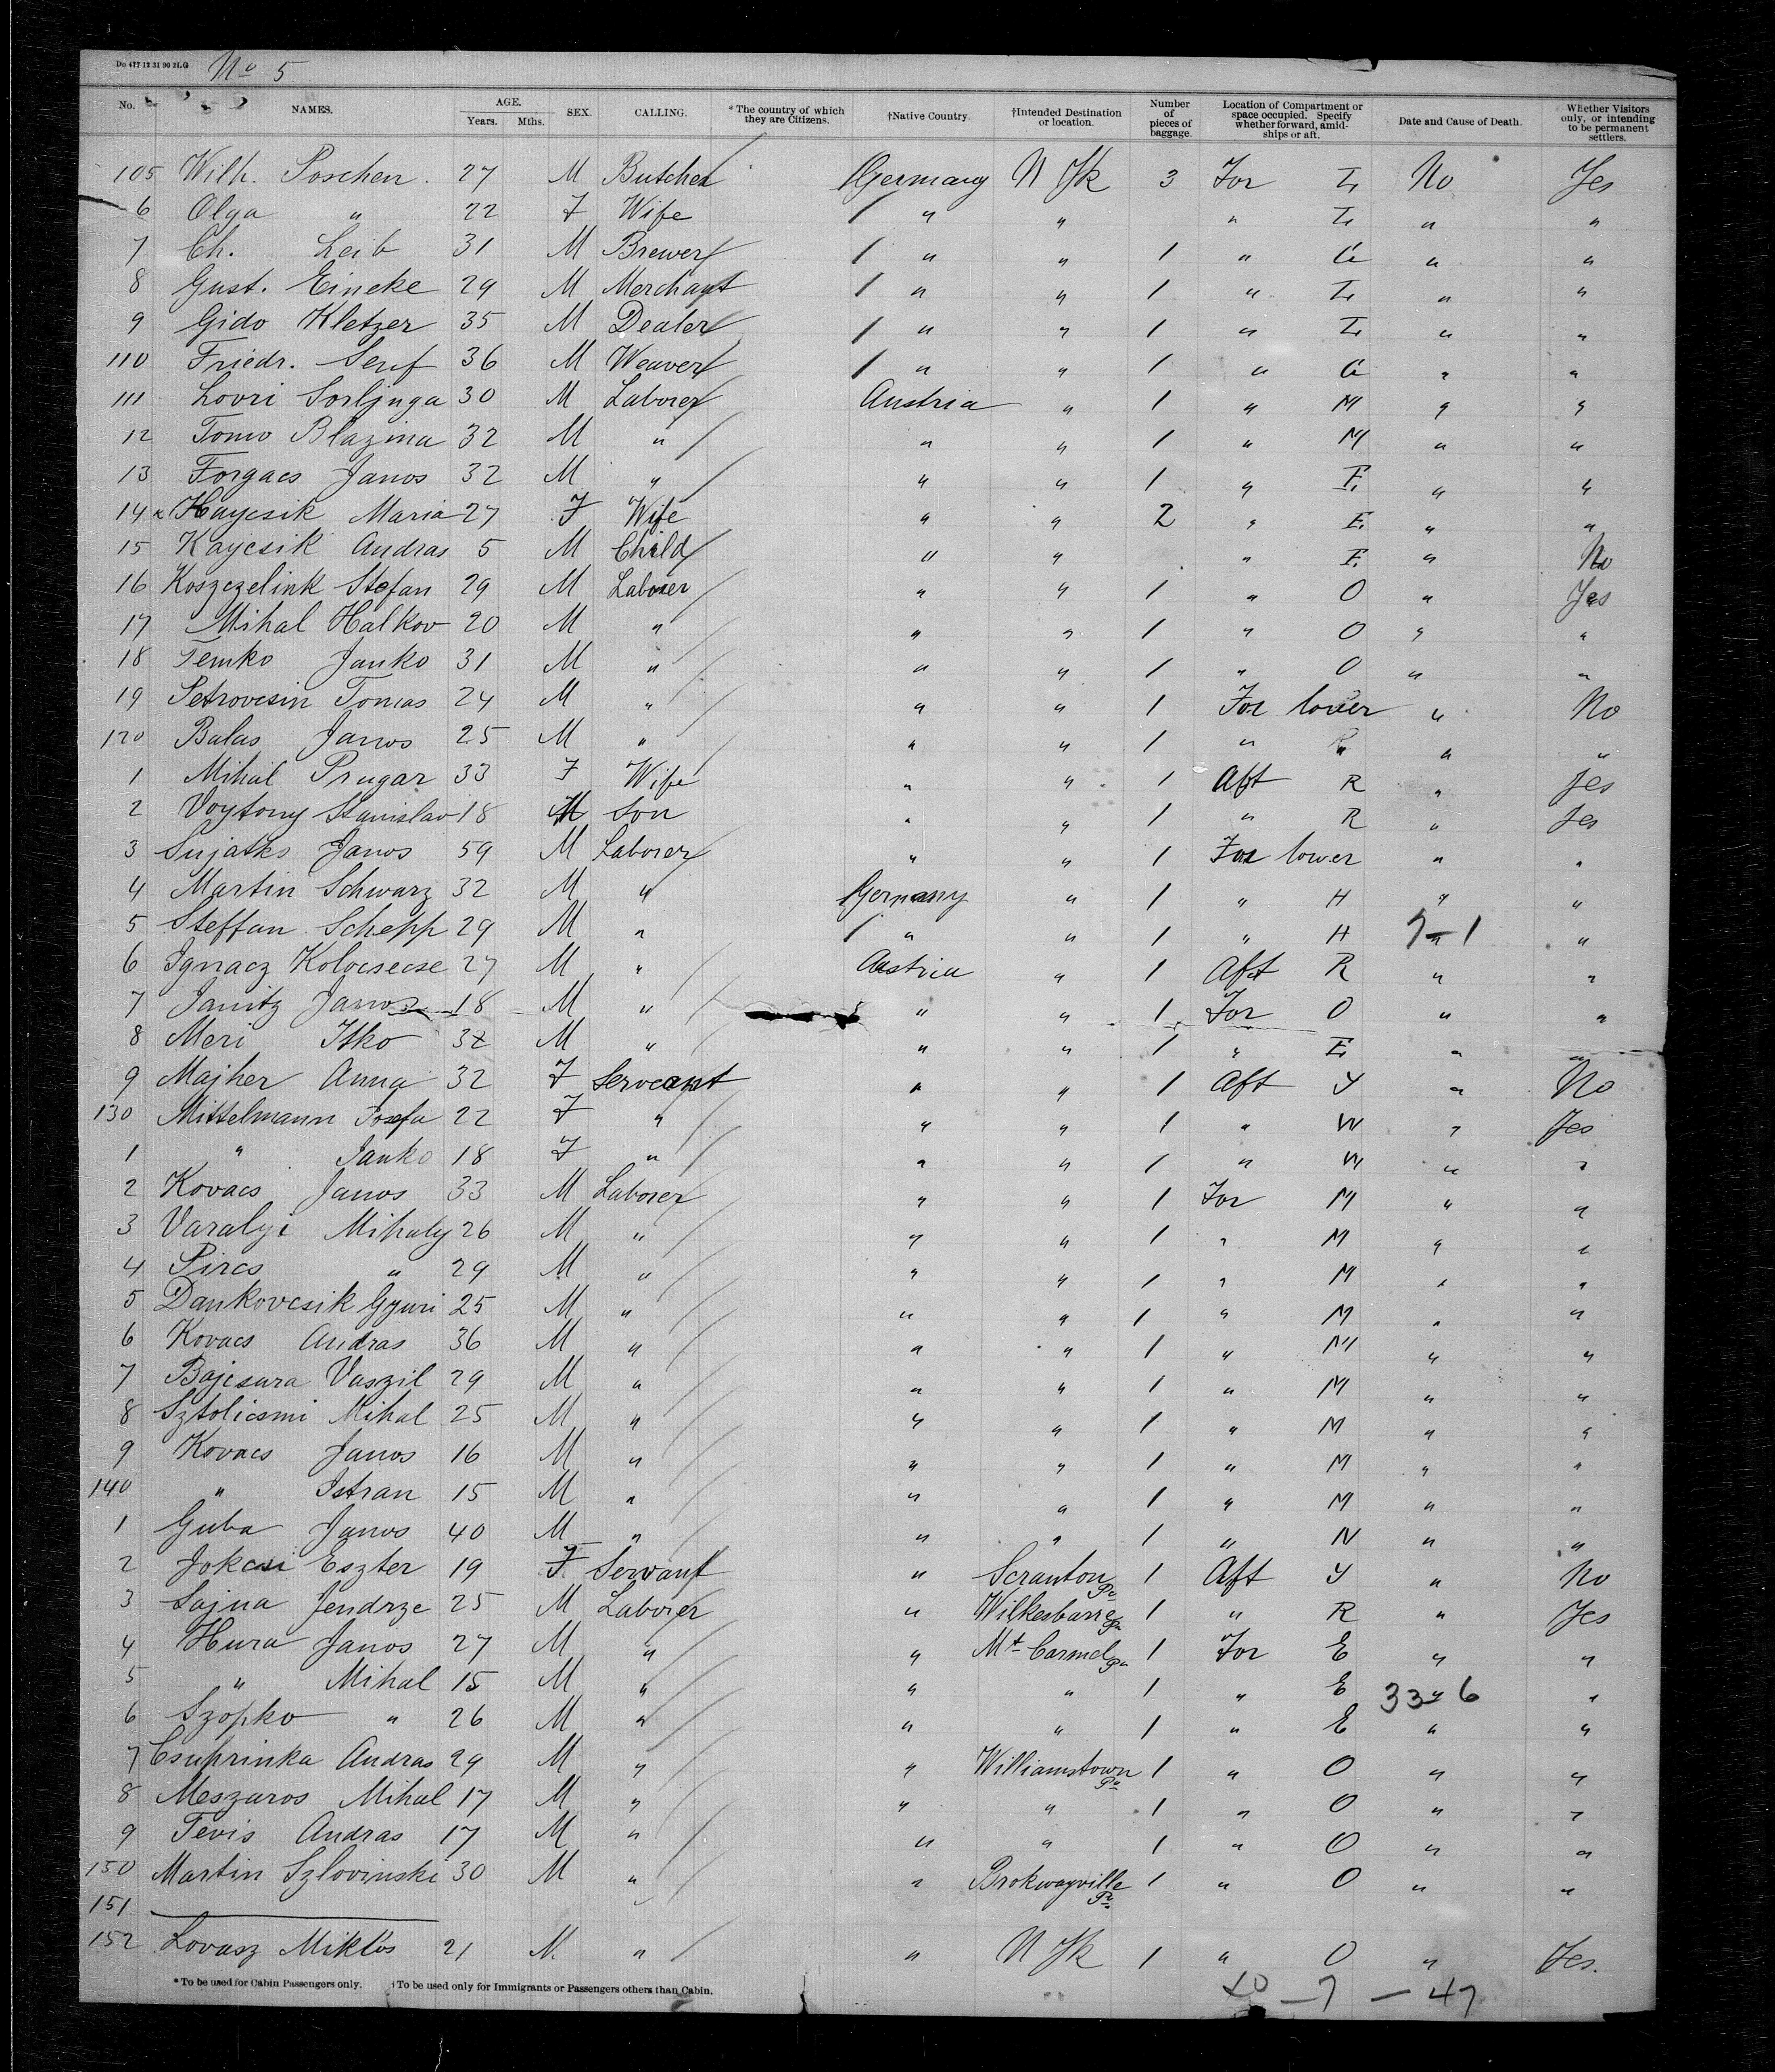 De 477 12 31 90 2LG No 5
No. NAMES. AGE. Years. Mths. SEX. CALLING. * The country of which they are Citizens. †Native Country. †Intended Destination or location. Number of pieces of baggage. Location of Compartment or space occupied. Specify whether forward, amidships or aft. Date and Cause of Death. Whether Visitors only, or intending to be permanent settlers.
105 Wilh. Poschen. 27 M Butcher Germany N Yk 3 For I, No Yes
6 Olga " 22 F Wife " " " I, " "
7 Ch. Leib 31 M Brewer " " 1 " G " "
8 Gust. Eineke 29 M Merchant " " 1 " I, " "
9 Gido Kletzer 35 M Dealer " " 1 " I, " "
110 Friedr. Senf 36 M Weaver " " 1 " G " "
111 Lovri Sorljuga 30 M Laborer Austria " 1 " M " "
12 Tomo Blazina 32 M " " " 1 " M " "
13 Forgacs Janos 32 M " " " 1 " E, " "
14 x Haycsik Maria 27 F Wife " " 2 " E, " "
15 Kaycsik Andras 5 M Child " " " E, " No
16 Koszczelink Stefan 29 M Laborer " " 1 " O " Yes
17 Mihal Halkov 20 M " " " 1 " O " "
18 Temko Janko 31 M " " " 1 " O " "
19 Petrovcsin Tomas 24 M " " " 1 For lower " No
120 Balas Janos 25 M " " " 1 " " " "
1 Mihal Prugar 33 F Wife " " 1 Aft R " Yes
2 Voytony Stanislav 18 M Son " " 1 " R " Yes
3 Sujatks Janos 59 M Laborer " " 1 For lower " "
4 Martin Schwarz 32 M " Germany " 1 " H " "
5 Steffan Schepp 29 M " " " 1 " H 7-1 "
6 Ignacz Kolocsecse 27 M " Austria " 1 Aft R " "
7 Janitz Janos 18 M " " " 1 For O " "
8 Meri Itko 32 M " " " 1 " E, " "
9 Majher Anna 32 F Servant " " 1 Aft Y " No
130 Mittelmann Josefa 22 F " " " 1 " W " Yes
1 " Janko 18 F " " " 1 " W " "
2 Kovacs Janos 33 M Laborer " " 1 For M " "
3 Varalyi Mihaly 26 M " " " 1 " M " "
4 Pircs " 29 M " " " 1 " M " "
5 Dankovcsik Gyuri 25 M " " " 1 " M " "
6 Kovacs Andras 36 M " " " 1 " M " "
7 Bajcsura Vaszil 29 M " " " 1 " M " "
8 Sztolicsmi Mihal 25 M " " " 1 " M " "
9 Kovacs Janos 16 M " " " 1 " M " "
140 " Istran 15 M " " " 1 " M " "
1 Guba Janos 40 M " " " 1 " N " "
2 Jokcsi Eszter 19 F Servant " Scranton Pa 1 Aft Y " No
3 Sajna Jendrze 25 M Laborer " Wilkesbarre Pa 1 " R " Yes
4 Hura Janos 27 M " " Mt Carmel Pa 1 For E " "
5 " Mihal 15 M " " " 1 " E 33-6 "
6 Szopko " 26 M " " " 1 " E " "
7 Csuprinka Andras 29 M " " Williamstown Pa 1 " O " "
8 Meszaros Mihal 17 M " " " 1 " O " "
9 Tevis Andras 17 M " " " 1 " O " "
150 Martin Szlovinski 30 M " " Brokwayville Pa 1 " O " "
151
152 Lovasz Miklos 21 M. " " N Yk 1 " O " Yes.
* To be used for Cabin Passengers only. †To be used only for Immigrants or Passengers others than Cabin.
40 - 7 - 47